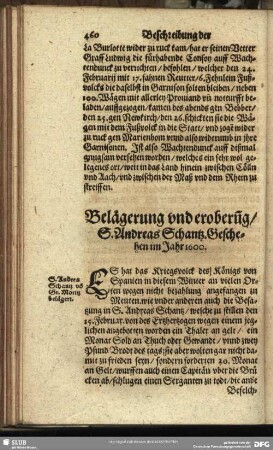 460 Beschreibung der
La Burlotte wider zu ruck kam/hat er seinen Vetter
Graff Ludwig die fürhabende Consoy auff Wach-
tendunck zu verrichten/befohlen/welcher den 24.
Februarij mit 17. fahnen Reuter/6. Fehnlein Fuß-
volcks die daselbst in Garnison solten bleiben/neben
100. Wägen mit allerley Prouiand vñ notturfft be-
laden/außgezogen/kamen des abends gen Bebber/
den 25. gen Newkirch/den 26. schickten sie die Wä-
gen mit dem Fußvolck in die Statt/und zogē wider
zu ruck gen Marienbom unnd also widerumb in ihre
Garnisonen. Ist also Wachtendunck auff dißmal
gnugsam versehen worden/welches ein sehr wol ge-
legenes ort/weit in das Land hinein zwischen Cölln
und Aach/und zwischen der Maß und dem Rhein zu
streiffen.
Belägerung vnd eroberūg/
S. Andreas Schantz, Gesche-
hen im Jahr 1600.
S. Andreas
Schantz vō
Gr. Moritz
belägert.
ES hat das Kriegsvolck des Königs von
Spanien in diesem Winter an vielen Or-
ten wegen nicht bezahlung angefangen zu
Meuten, wie under anderen auch die Besa-
tzung in S. Andreas Schantz/welche zu stillen den
15. Februar. von des Ertzhertzogen wegen einem jeg-
lichen angeboten worden ein Thaler an gelt/ein
Monat Sold an Thuch oder Gewandt/unnd zwey
Pfund Brodt des tags: sie aber wolten gar nicht da-
mit zu frieden seyn/sondern forderten 20. Monat
an Gelt/wurffen auch einen Capitän vber die Brü-
cken ab/schlugen einen Serganten zu todt/die ande
Befelch-
SLUB
DFG